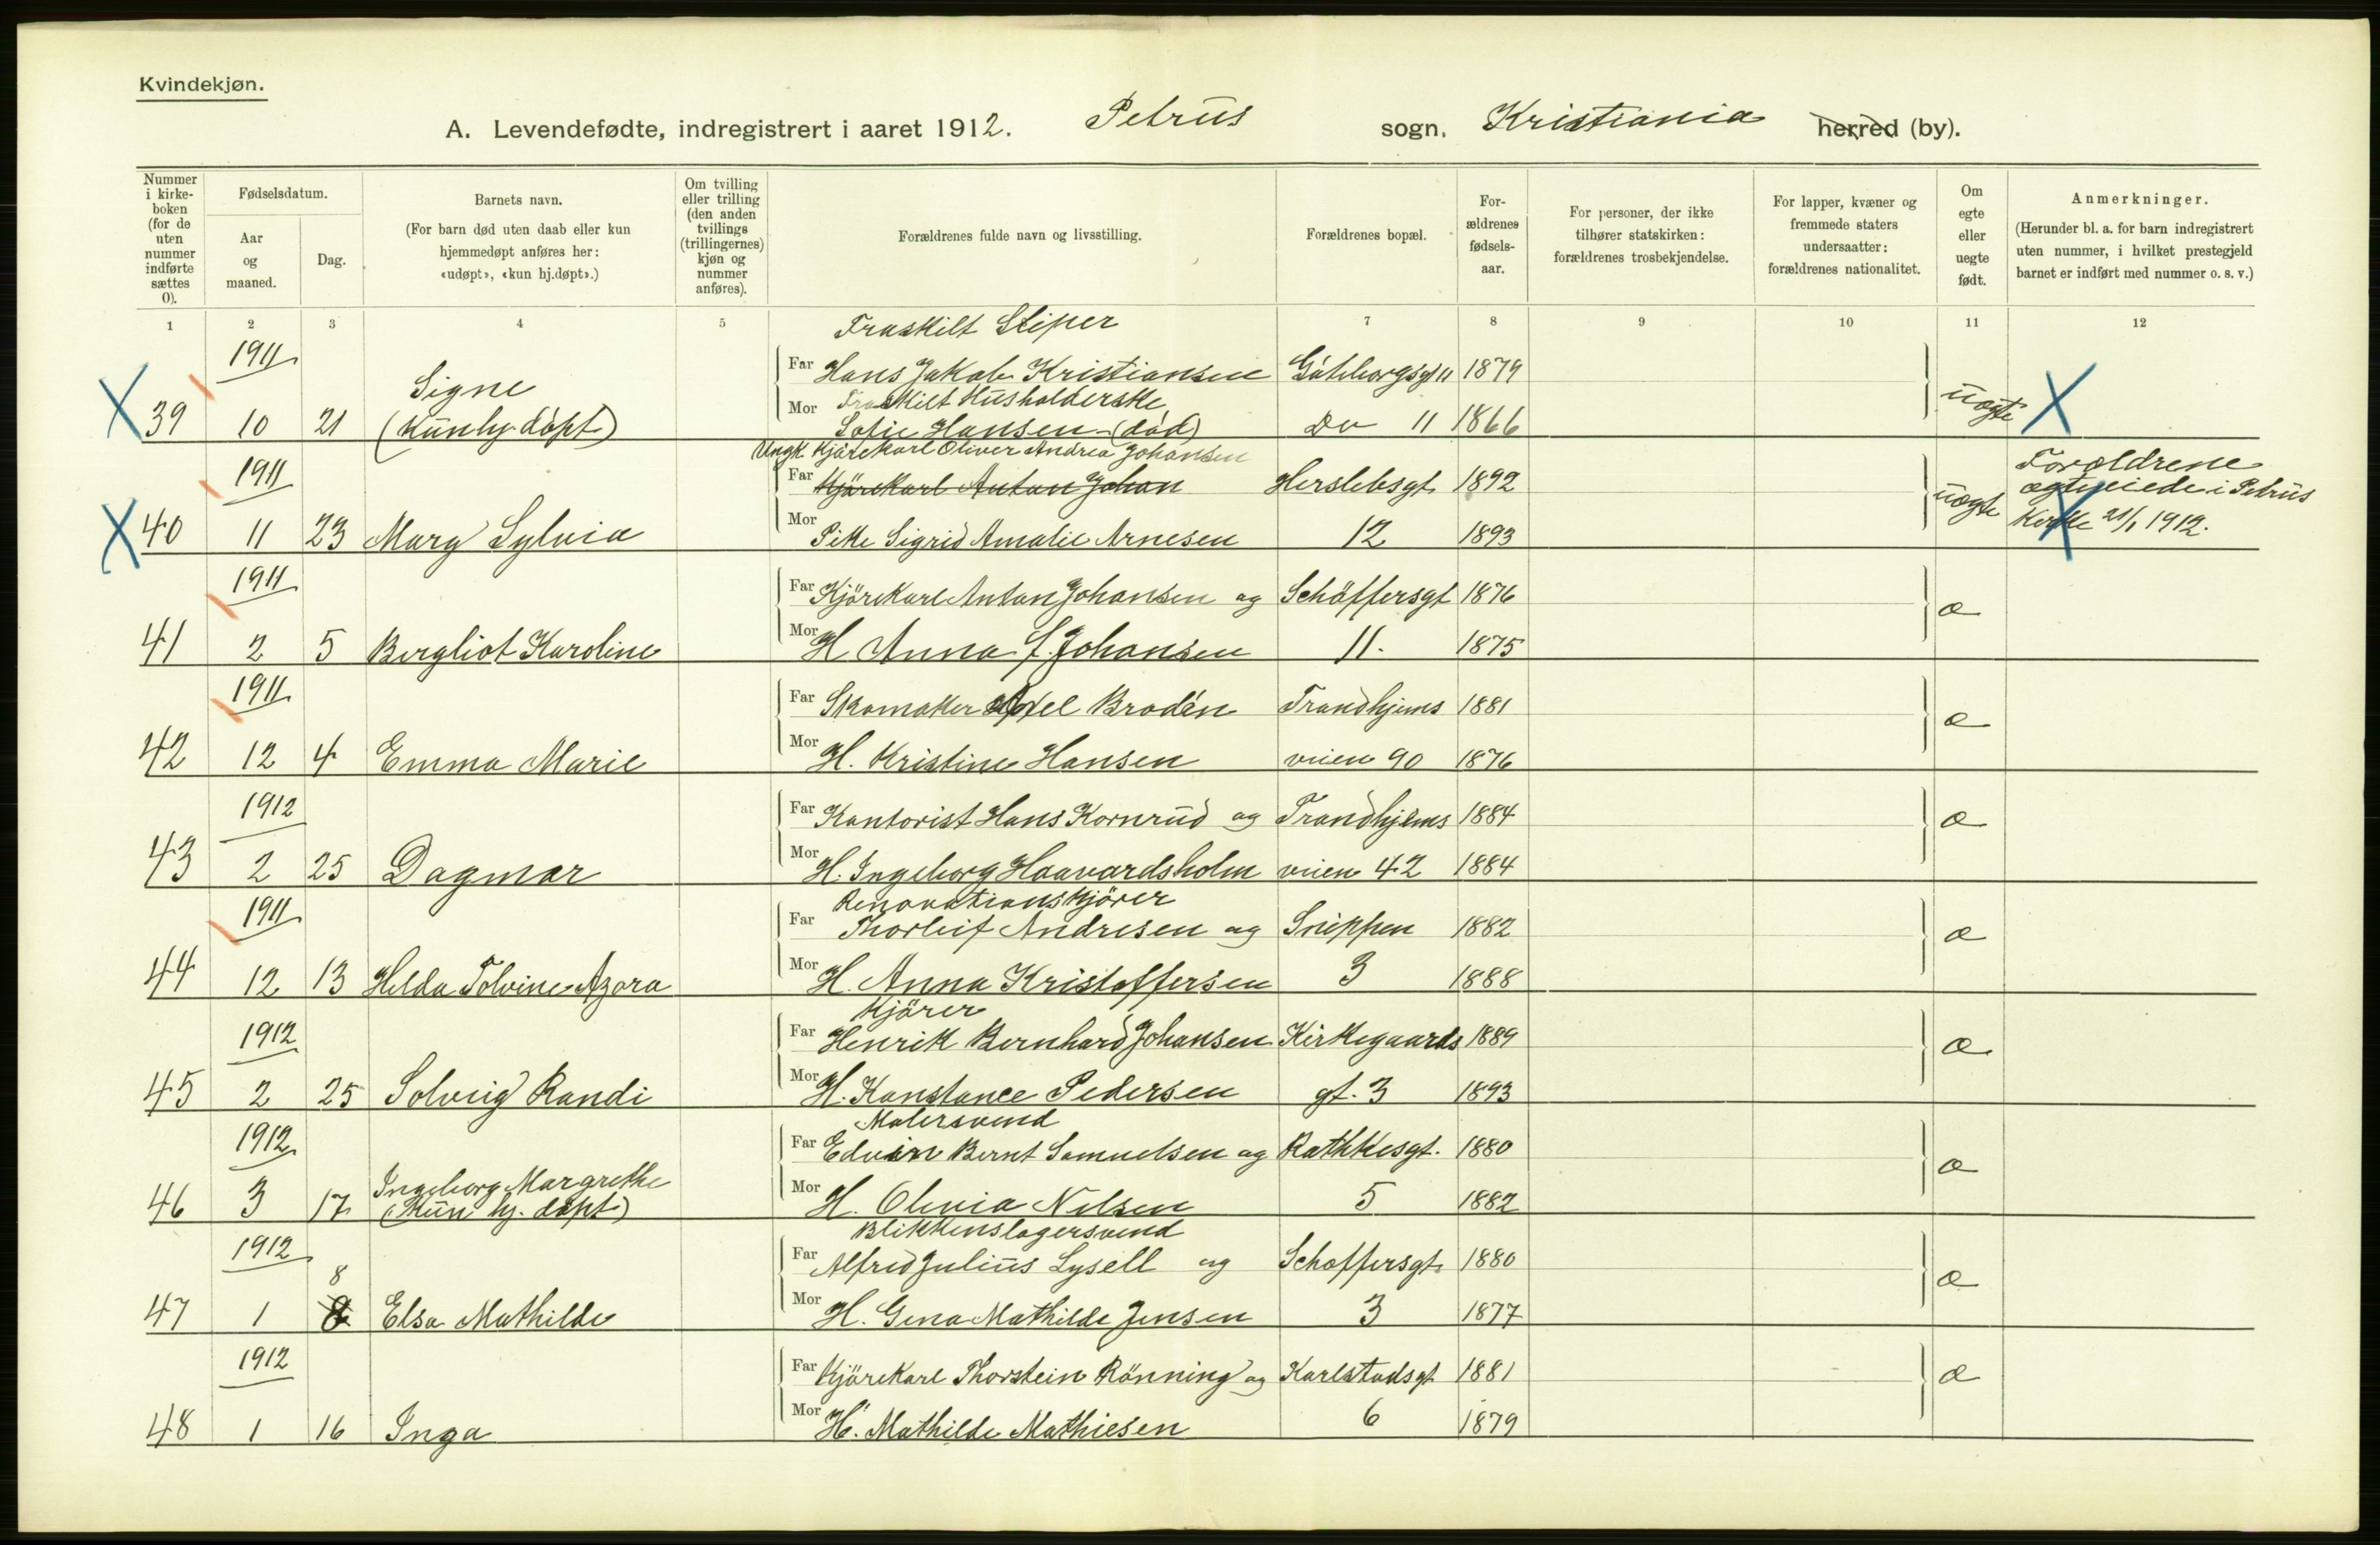 Kvindekjøn.
A. Levendefødte, indregistrert i aaret 1912. Petrus sogn, Kristiania herred (by).
Nummer i kirkeboken (for de uten nummer indførte sættes 0).
Fødselsdatum.
Aar og maaned.
Dag.
Barnets navn.
(For barn død uten daab eller kun hjemmedøpt anføres her: «udøpt», «kun hj.døpt».)
Om tvilling eller trilling (den anden tvillings (trillingernes) kjøn og nummer anføres).
Forældrenes fulde navn og livsstilling.
Forældrenes bopæl.
Forældrenes fødselsaar.
For personer, der ikke tilhører statskirken: forældrenes trosbekjendelse.
For lapper, kvæner og fremmede staters undersaatter: forældrenes nationalitet.
Om egte eller uegte født.
Anmerkninger.
(Herunder bl. a. for barn indregistrert uten nummer, i hvilket prestegjeld barnet er indført med nummer o. s. v.)
1 2 3 4 5 7 8 9 10 11 12
Fraskilt Sliper
1911 Far Hans Jakob Kristiansen Göteborgsgt 11 1879
Signe Mor Fraskilt Husholderske
39 10 21 (Kun hj. døpt) Sofie Hansen (død) Do 11 1866 uægte
Ungk. Kjørekarl Oliver Andrea Johansen
1911 Far Kjørekarl Anton Johan Herslebsgt. 1892
Forældrene ægteviede i Petrus
40 11 23 Mary Sylvia Mor Pike Sigrid Amalie Arnesen 12 1893 uægte Kirke 21/1 1912.
1911 Far Kjörekarl Anton Johansen og Schäffersgt 1876
41 2 5 Bergliot Karoline Mor H Anna f. Johansen 11. 1875 æ
1911 Far Skomaker Axel Brodén Trondhjems 1881
42 12 4 Emma Marie Mor H. Kristine Hansen veien 90 1876 æ
1912 Far Kontorist Hans Kornrud og Trondhjems 1884
43 2 25 Dagmar Mor H. Ingeborg Haavardsholm veien 42 1884 æ
Renovationskjörer
1911 Far Thorleif Andresen og Sneppen 1882
44 12 13 Helda Tolvine Azora Mor H. Anna Kristoffersen 3 1888 æ
Kjörer
1912 Far Henrik Bernhard Johansen Kirkegaards 1889
45 2 25 Solveig Randi Mor H. Konstance Pedersen gt. 3 1893 æ
Malersvend
1912 Far Edvin Bernt Samuelsen og Rathkesgt. 1880
Ingeborg Margrethe
46 3 17 (Kun hj. døpt) Mor H. Olevia Nilsen 5 1882 æ
Blikkenslagersvend
1912 Far Alfred Julius Lysell og Schoffersgt. 1880
8
47 1 Elsa Mathilde Mor H. Gena Mathilde Jensen 3 1877 æ
1912 Far Kjörekarl Thorstein Rönning og Karlstadsgt 1881
48 1 16 Inga Mor H. Mathilde Mathiesen 6 1879 æ